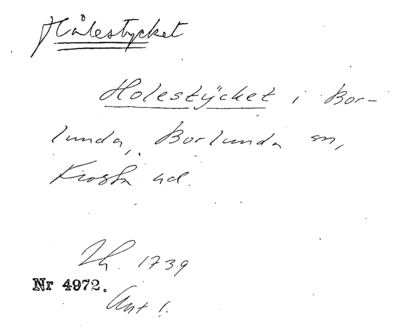 Hålestycket
Holestÿcket i Bor-
lunda, Borlunda sn,
Frosta hd.
Lh. 1739
Nr 4972.
Ant 1.